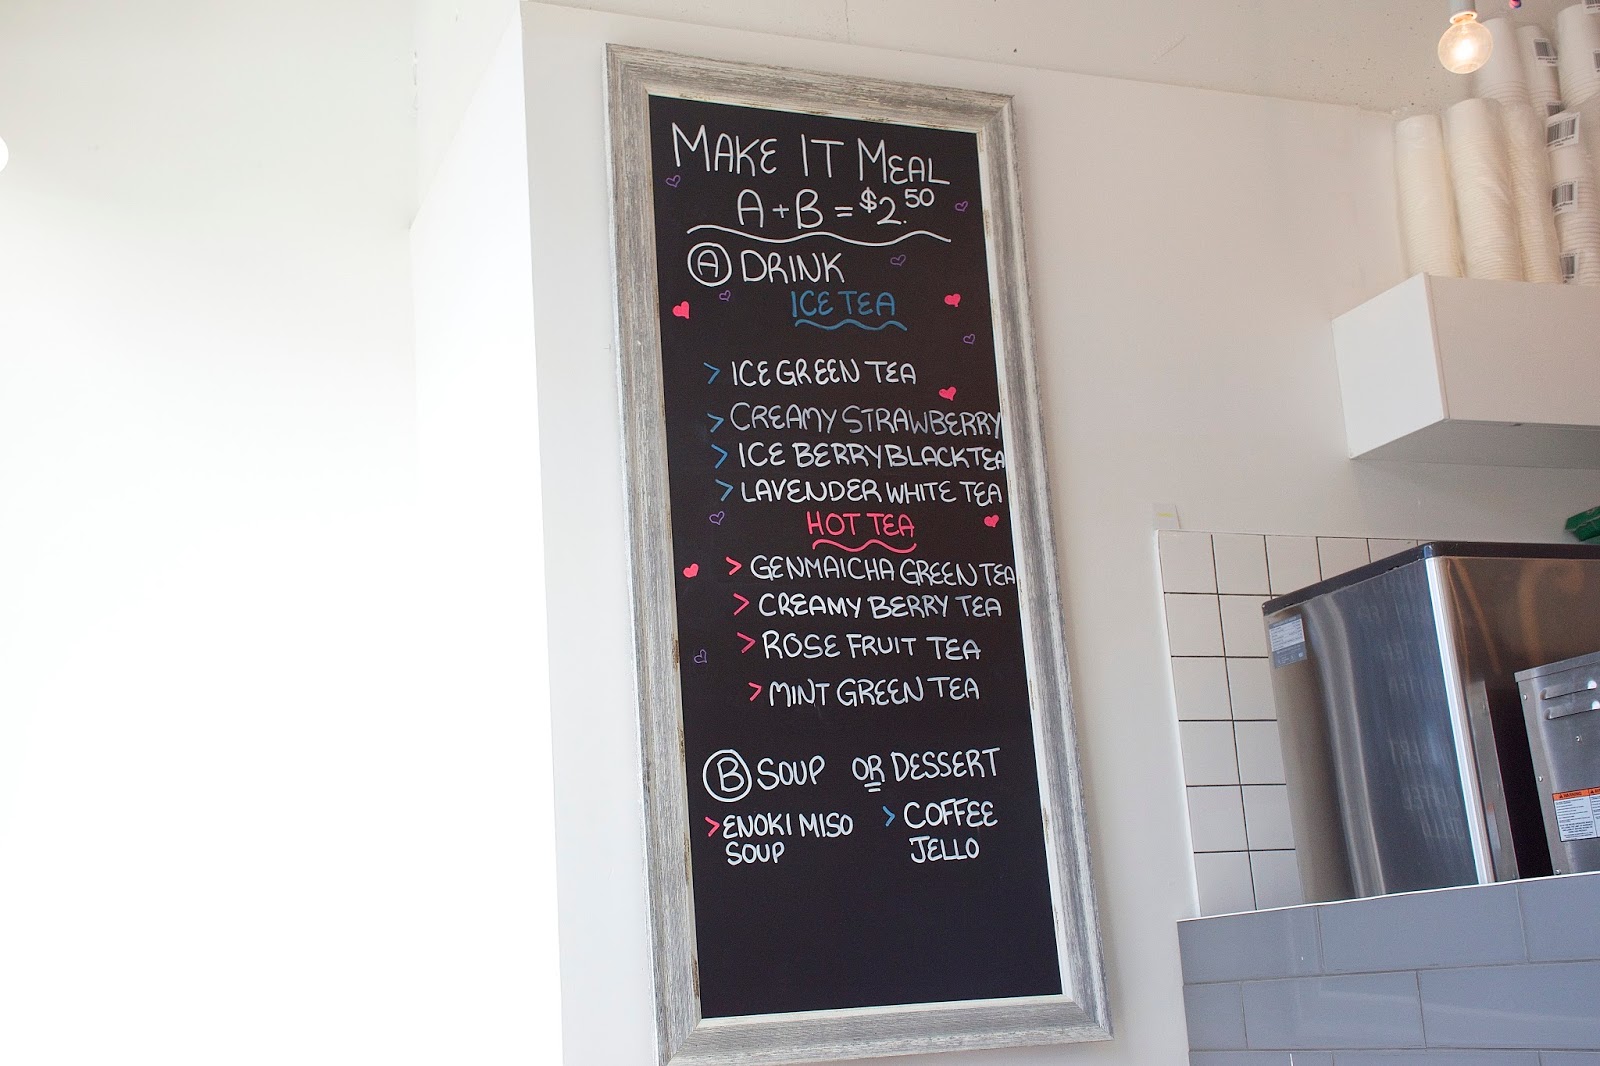 MAKE IT MEAL
A + B = $2.50
A DRINK
ICE TEA
> ICE GREEN TEA
> CREAMY STRAWBERRY
> ICE BERRY BLACK TEA
> LAVENDER WHITE TEA
HOT TEA
> GENMAICHA GREEN TEA
> CREAMY BERRY TEA
> ROSE FRUIT TEA
> MINT GREEN TEA
B SOUP OR DESSERT
> ENOKI MISO SOUP
> COFFEE JELLO